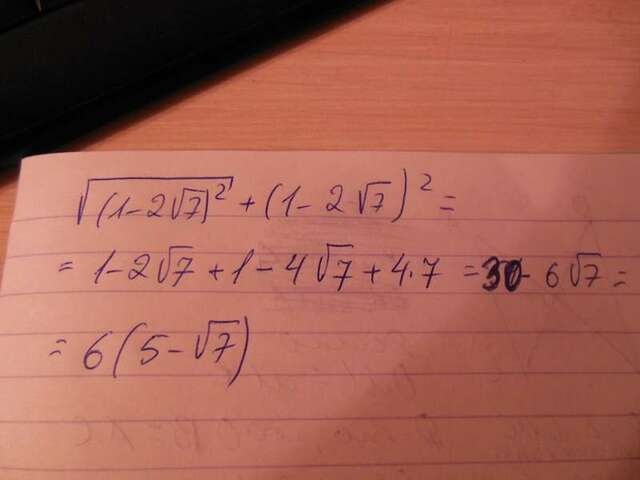 √(1-2√7)² + (1-2√7)² =
= 1-2√7 + 1 - 4√7 + 4·7 = 30 - 6√7 =
= 6(5-√7)